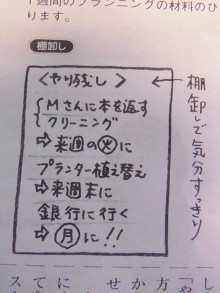 1週間のプランニングの材料のひ
ります。
棚卸し
<やり残し>
Mさんに本を返す
クリーニング
⇨来週の㊋に
プランター植え替え
⇨来週末に
銀行に行く
⇨㊊に!!
←棚卸しで気分すっきり